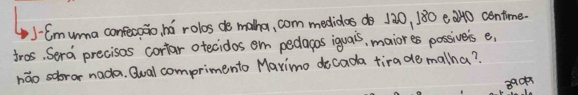 1-Em uma confecção, há rolos de malha, com medidas de 120, 180 e 240 centime-
tros. Será precisos cortar o tecidos em pedaços iguais, maiores possiveis e,
não sobrar nada. Qual comprimento Maximo de cada tira de malha?